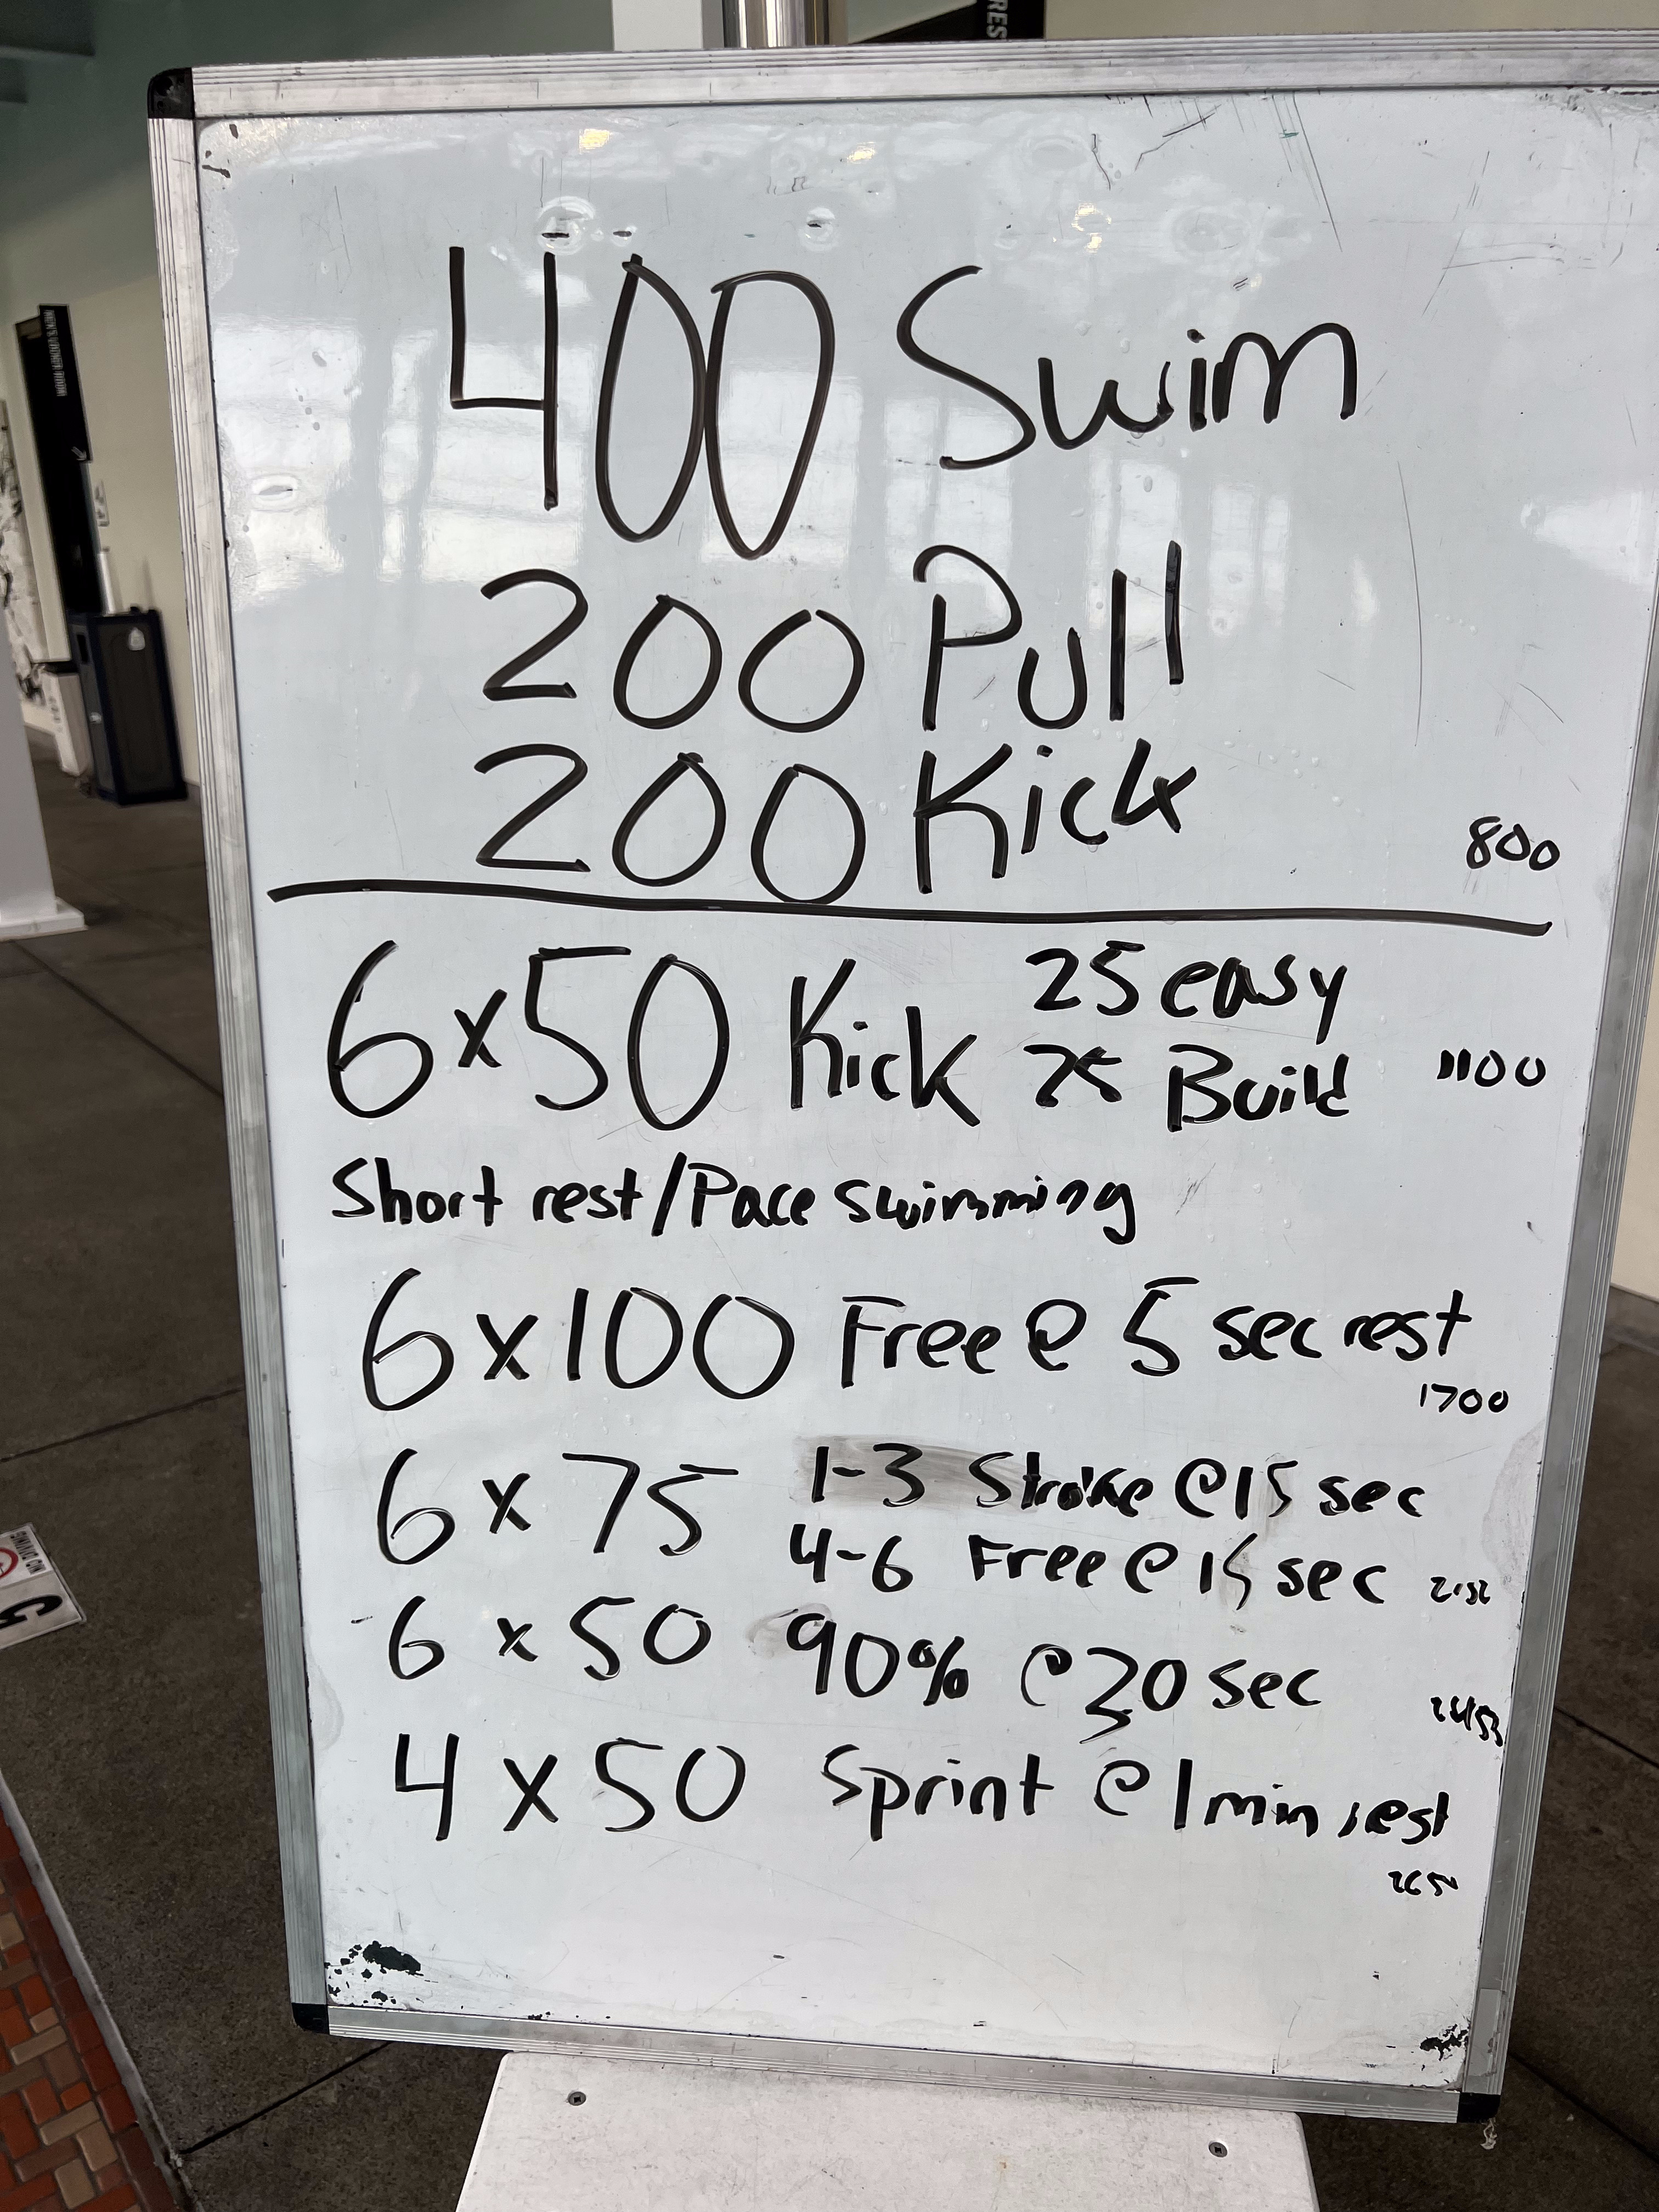 400 Swim
200 Pull
200 Kick
800
6x50 Kick 25 easy
25 Build 1100
Short rest/Pace swimming
6x100 Free @ 5 sec rest
1700
6 x 75 1-3 Stroke @ 15 sec
4-6 Free @ 15 sec
6 x 50 90% @ 20 sec
4 x 50 Sprint @ 1 min rest
2650
MEN'S LOCKER ROOM
NO DIVING
RES